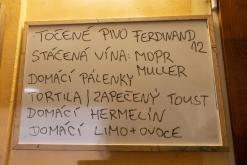 TOČENÉ PIVO FERDINAND 12
STÁČENÁ VÍNA: MOPR
MULLER
DOMÁCÍ PÁLENKY
TORTILA / ZAPEČENÝ TOUST
DOMÁCÍ HERMELÍN
DOMÁCÍ LIMO + OVOCE